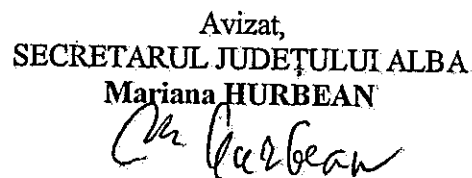 Avizat,
SECRETARUL JUDEŢULUI ALBA
Mariana HURBEAN